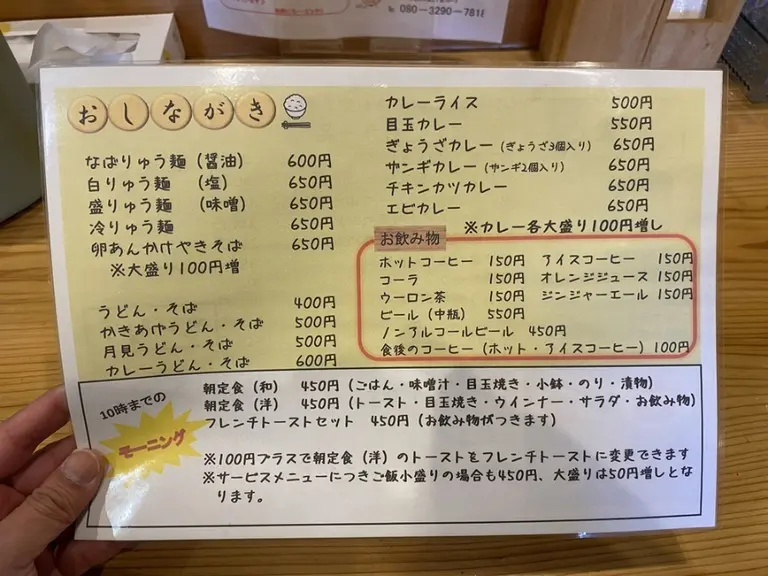 ℡ 080-3290-7818
おしながき
なばりゅう麺(醤油) 600円
白りゅう麺 (塩) 650円
盛りゅう麺 (味噌) 650円
冷りゅう麺 650円
卵あんかけやきそば 650円
※大盛り100円増
うどん・そば 400円
かきあげうどん・そば 500円
月見うどん・そば 500円
カレーうどん・そば 600円
カレーライス 500円
目玉カレー 550円
ぎょうざカレー(ぎょうざ3個入り) 650円
ザンギカレー(ザンギ2個入り) 650円
チキンカツカレー 650円
エビカレー 650円
※カレー各大盛り100円増し
お飲み物
ホットコーヒー 150円 アイスコーヒー 150円
コーラ 150円 オレンジジュース 150円
ウーロン茶 150円 ジンジャーエール 150円
ビール(中瓶) 550円
ノンアルコールビール 450円
食後のコーヒー(ホット・アイスコーヒー)100円
10時までの
モーニング
朝定食(和) 450円(ごはん・味噌汁・目玉焼き・小鉢・のり・漬物)
朝定食(洋) 450円(トースト・目玉焼き・ウインナー・サラダ・お飲み物)
フレンチトーストセット 450円(お飲み物がつきます)
※100円プラスで朝定食(洋)のトーストをフレンチトーストに変更できます
※サービスメニューにつきご飯小盛りの場合も450円、大盛りは50円増しとな
ります。